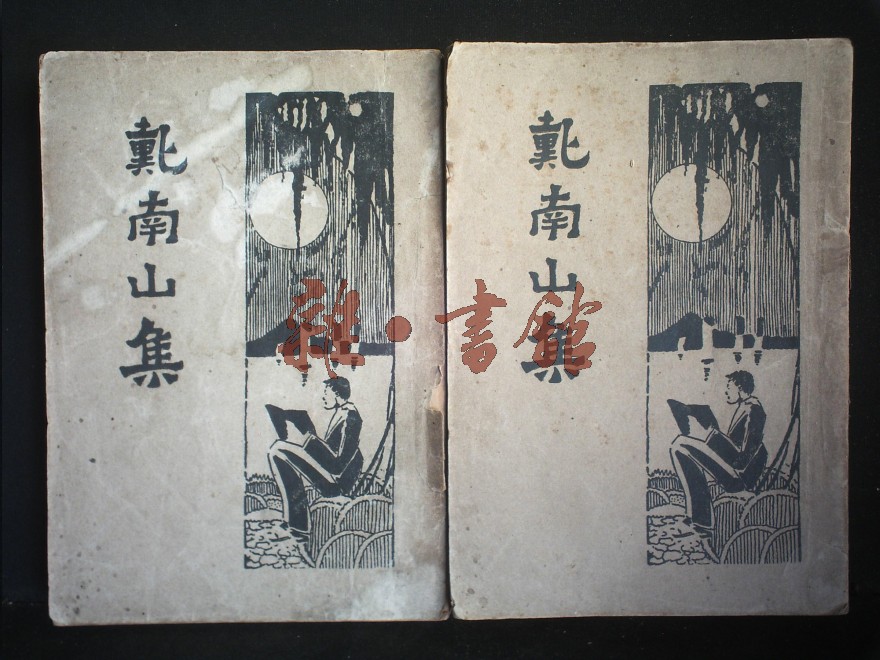 戴南山集
戴南山集
雜·書館